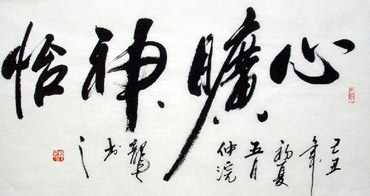 心曠神怡
己丑
年
初夏
五月
仲浣
書